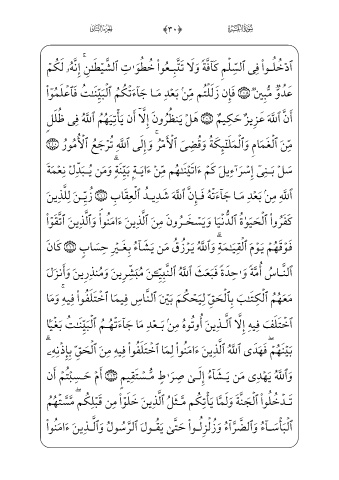 سُورَةُ البَقَرَةِ ﴿٣٠﴾ الجزء الثاني
ٱدۡخُلُواْ فِي ٱلسِّلۡمِ كَآفَّةٗ وَلَا تَتَّبِعُواْ خُطُوَٰتِ ٱلشَّيۡطَٰنِۚ إِنَّهُۥ لَكُمۡ
عَدُوّٞ مُّبِينٞ فَإِن زَلَلۡتُم مِّنۢ بَعۡدِ مَا جَآءَتۡكُمُ ٱلۡبَيِّنَٰتُ فَٱعۡلَمُوٓاْ
أَنَّ ٱللَّهَ عَزِيزٌ حَكِيمٌ هَلۡ يَنظُرُونَ إِلَّآ أَن يَأۡتِيَهُمُ ٱللَّهُ فِي ظُلَلٖ
مِّنَ ٱلۡغَمَامِ وَٱلۡمَلَٰٓئِكَةُ وَقُضِيَ ٱلۡأَمۡرُۚ وَإِلَى ٱللَّهِ تُرۡجَعُ ٱلۡأُمُورُ
سَلۡ بَنِيٓ إِسۡرَٰٓءِيلَ كَمۡ ءَاتَيۡنَٰهُم مِّنۡ ءَايَةِۭ بَيِّنَةٖۗ وَمَن يُبَدِّلۡ نِعۡمَةَ
ٱللَّهِ مِنۢ بَعۡدِ مَا جَآءَتۡهُ فَإِنَّ ٱللَّهَ شَدِيدُ ٱلۡعِقَابِ زُيِّنَ لِلَّذِينَ
كَفَرُواْ ٱلۡحَيَوٰةُ ٱلدُّنۡيَا وَيَسۡخَرُونَ مِنَ ٱلَّذِينَ ءَامَنُواْۘ وَٱلَّذِينَ ٱتَّقَوۡاْ
فَوۡقَهُمۡ يَوۡمَ ٱلۡقِيَٰمَةِۗ وَٱللَّهُ يَرۡزُقُ مَن يَشَآءُ بِغَيۡرِ حِسَابٖ كَانَ
ٱلنَّاسُ أُمَّةٗ وَٰحِدَةٗ فَبَعَثَ ٱللَّهُ ٱلنَّبِيِّـۧنَ مُبَشِّرِينَ وَمُنذِرِينَ وَأَنزَلَ
مَعَهُمُ ٱلۡكِتَٰبَ بِٱلۡحَقِّ لِيَحۡكُمَ بَيۡنَ ٱلنَّاسِ فِيمَا ٱخۡتَلَفُواْ فِيهِۚ وَمَا
ٱخۡتَلَفَ فِيهِ إِلَّا ٱلَّذِينَ أُوتُوهُ مِنۢ بَعۡدِ مَا جَآءَتۡهُمُ ٱلۡبَيِّنَٰتُ بَغۡيَۢا
بَيۡنَهُمۡۖ فَهَدَى ٱللَّهُ ٱلَّذِينَ ءَامَنُواْ لِمَا ٱخۡتَلَفُواْ فِيهِ مِنَ ٱلۡحَقِّ بِإِذۡنِهِۦۗ
وَٱللَّهُ يَهۡدِي مَن يَشَآءُ إِلَىٰ صِرَٰطٖ مُّسۡتَقِيمٍ أَمۡ حَسِبۡتُمۡ أَن
تَدۡخُلُواْ ٱلۡجَنَّةَ وَلَمَّا يَأۡتِكُم مَّثَلُ ٱلَّذِينَ خَلَوۡاْ مِن قَبۡلِكُمۖ مَّسَّتۡهُمُ
ٱلۡبَأۡسَآءُ وَٱلضَّرَّآءُ وَزُلۡزِلُواْ حَتَّىٰ يَقُولَ ٱلرَّسُولُ وَٱلَّذِينَ ءَامَنُواْ